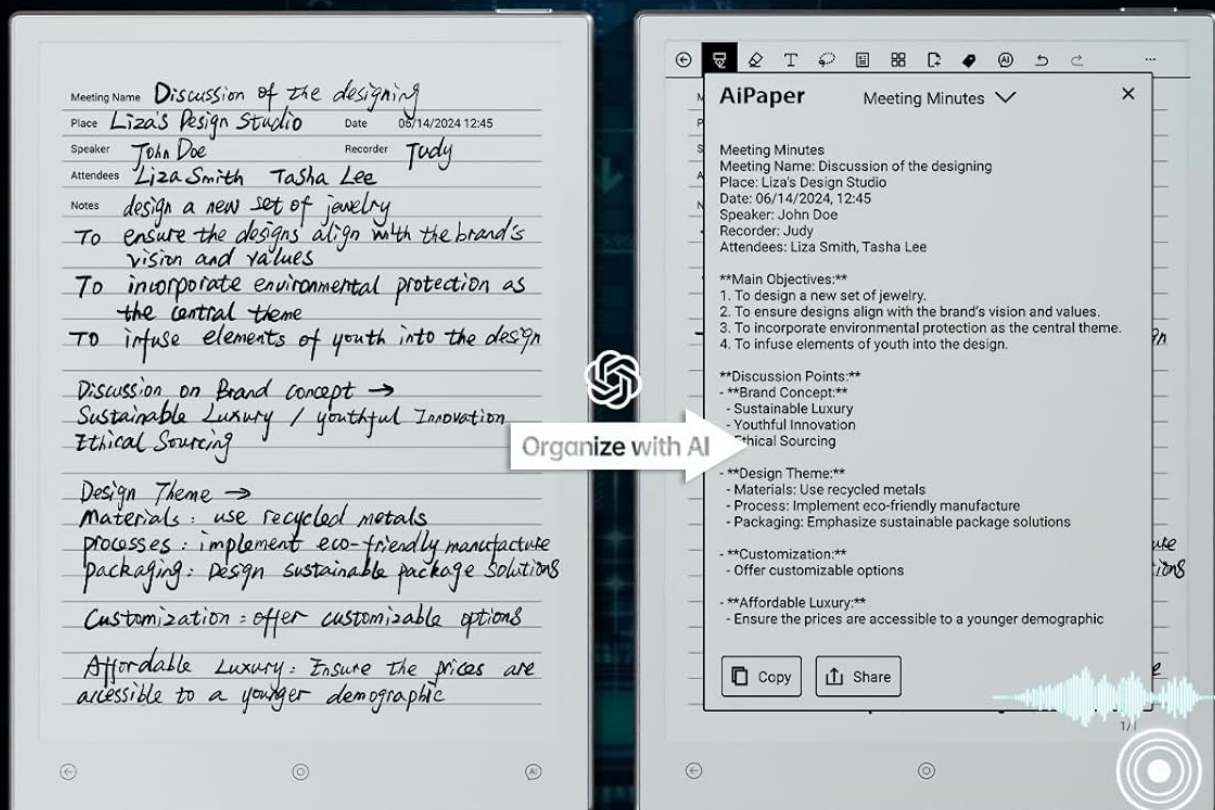 Meeting Name Discussion of the designing
Place Liza's Design Studio Date 06/14/2024 12:45
Speaker John Doe Recorder Judy
Attendees Liza Smith Tasha Lee
Notes design a new set of jewelry
To ensure the designs align with the brand's
vision and values
To incorporate environmental protection as
the central theme
To infuse elements of youth into the design
Discussion on Brand concept →
Sustainable Luxury / youthful Innovation
Ethical Sourcing
Design Theme →
Materials: use recycled metals
processes: implement eco-friendly manufacture
packaging: Design sustainable package solutions
Customization: offer customizable options
Affordable Luxury: Ensure the prices are
accessible to a younger demographic
AI
Organize with AI
T
AI
AiPaper Meeting Minutes
Meeting Minutes
Meeting Name: Discussion of the designing
Place: Liza's Design Studio
Date: 06/14/2024, 12:45
Speaker: John Doe
Recorder: Judy
Attendees: Liza Smith, Tasha Lee
**Main Objectives:**
1. To design a new set of jewelry.
2. To ensure designs align with the brand's vision and values.
3. To incorporate environmental protection as the central theme.
4. To infuse elements of youth into the design.
**Discussion Points:**
- **Brand Concept:**
- Sustainable Luxury
- Youthful Innovation
Ethical Sourcing
- **Design Theme:**
- Materials: Use recycled metals
- Process: Implement eco-friendly manufacture
- Packaging: Emphasize sustainable package solutions
- **Customization:**
- Offer customizable options
- **Affordable Luxury:**
- Ensure the prices are accessible to a younger demographic
Copy
Share
1/1